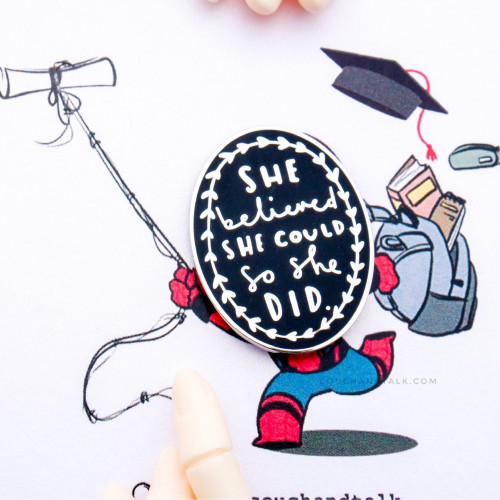 SHE
believed
SHE COULD
so she
DID.
COUCHANDTALK.COM
couchandtalk